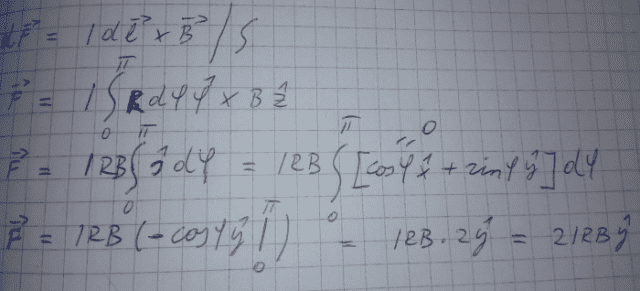 dF⃗ = I dl⃗ × B⃗ / ∫
F⃗ = I ∫₀^π R dφ φ̂ × B ẑ
F⃗ = IRB ∫₀^π ŝ dφ = IRB ∫₀^π [cosφ x̂ + sinφ ŷ] dφ
F⃗ = IRB (-cosφ ŷ |₀^π) = IRB · 2ŷ = 2IRB ŷ